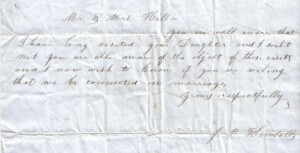 Mr & Mrs Hill
you will know that
I have long visited your Daughter and I doubt
not you are able aware of the object of these visits
and I now wish to know if you are willing
that we be connected in marriage.
Yours respectfully
J.